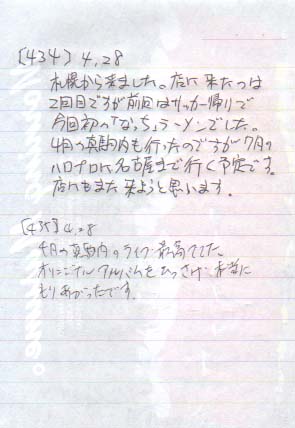 [434] 4.28
札幌から来ました。店に来たのは
2回目ですが前回はサッカー帰りで
今回初の「なっちょラーメン」でした。
4月の真駒内も行ったのですが7月の
ハロプロに名古屋まで行く予定です。
店にもまた来ようと思います。
[435] 4.28
4月の真駒内のライブ最高でした。
オリジナルアルバムをひっさげ 本当に
もりあがったです。